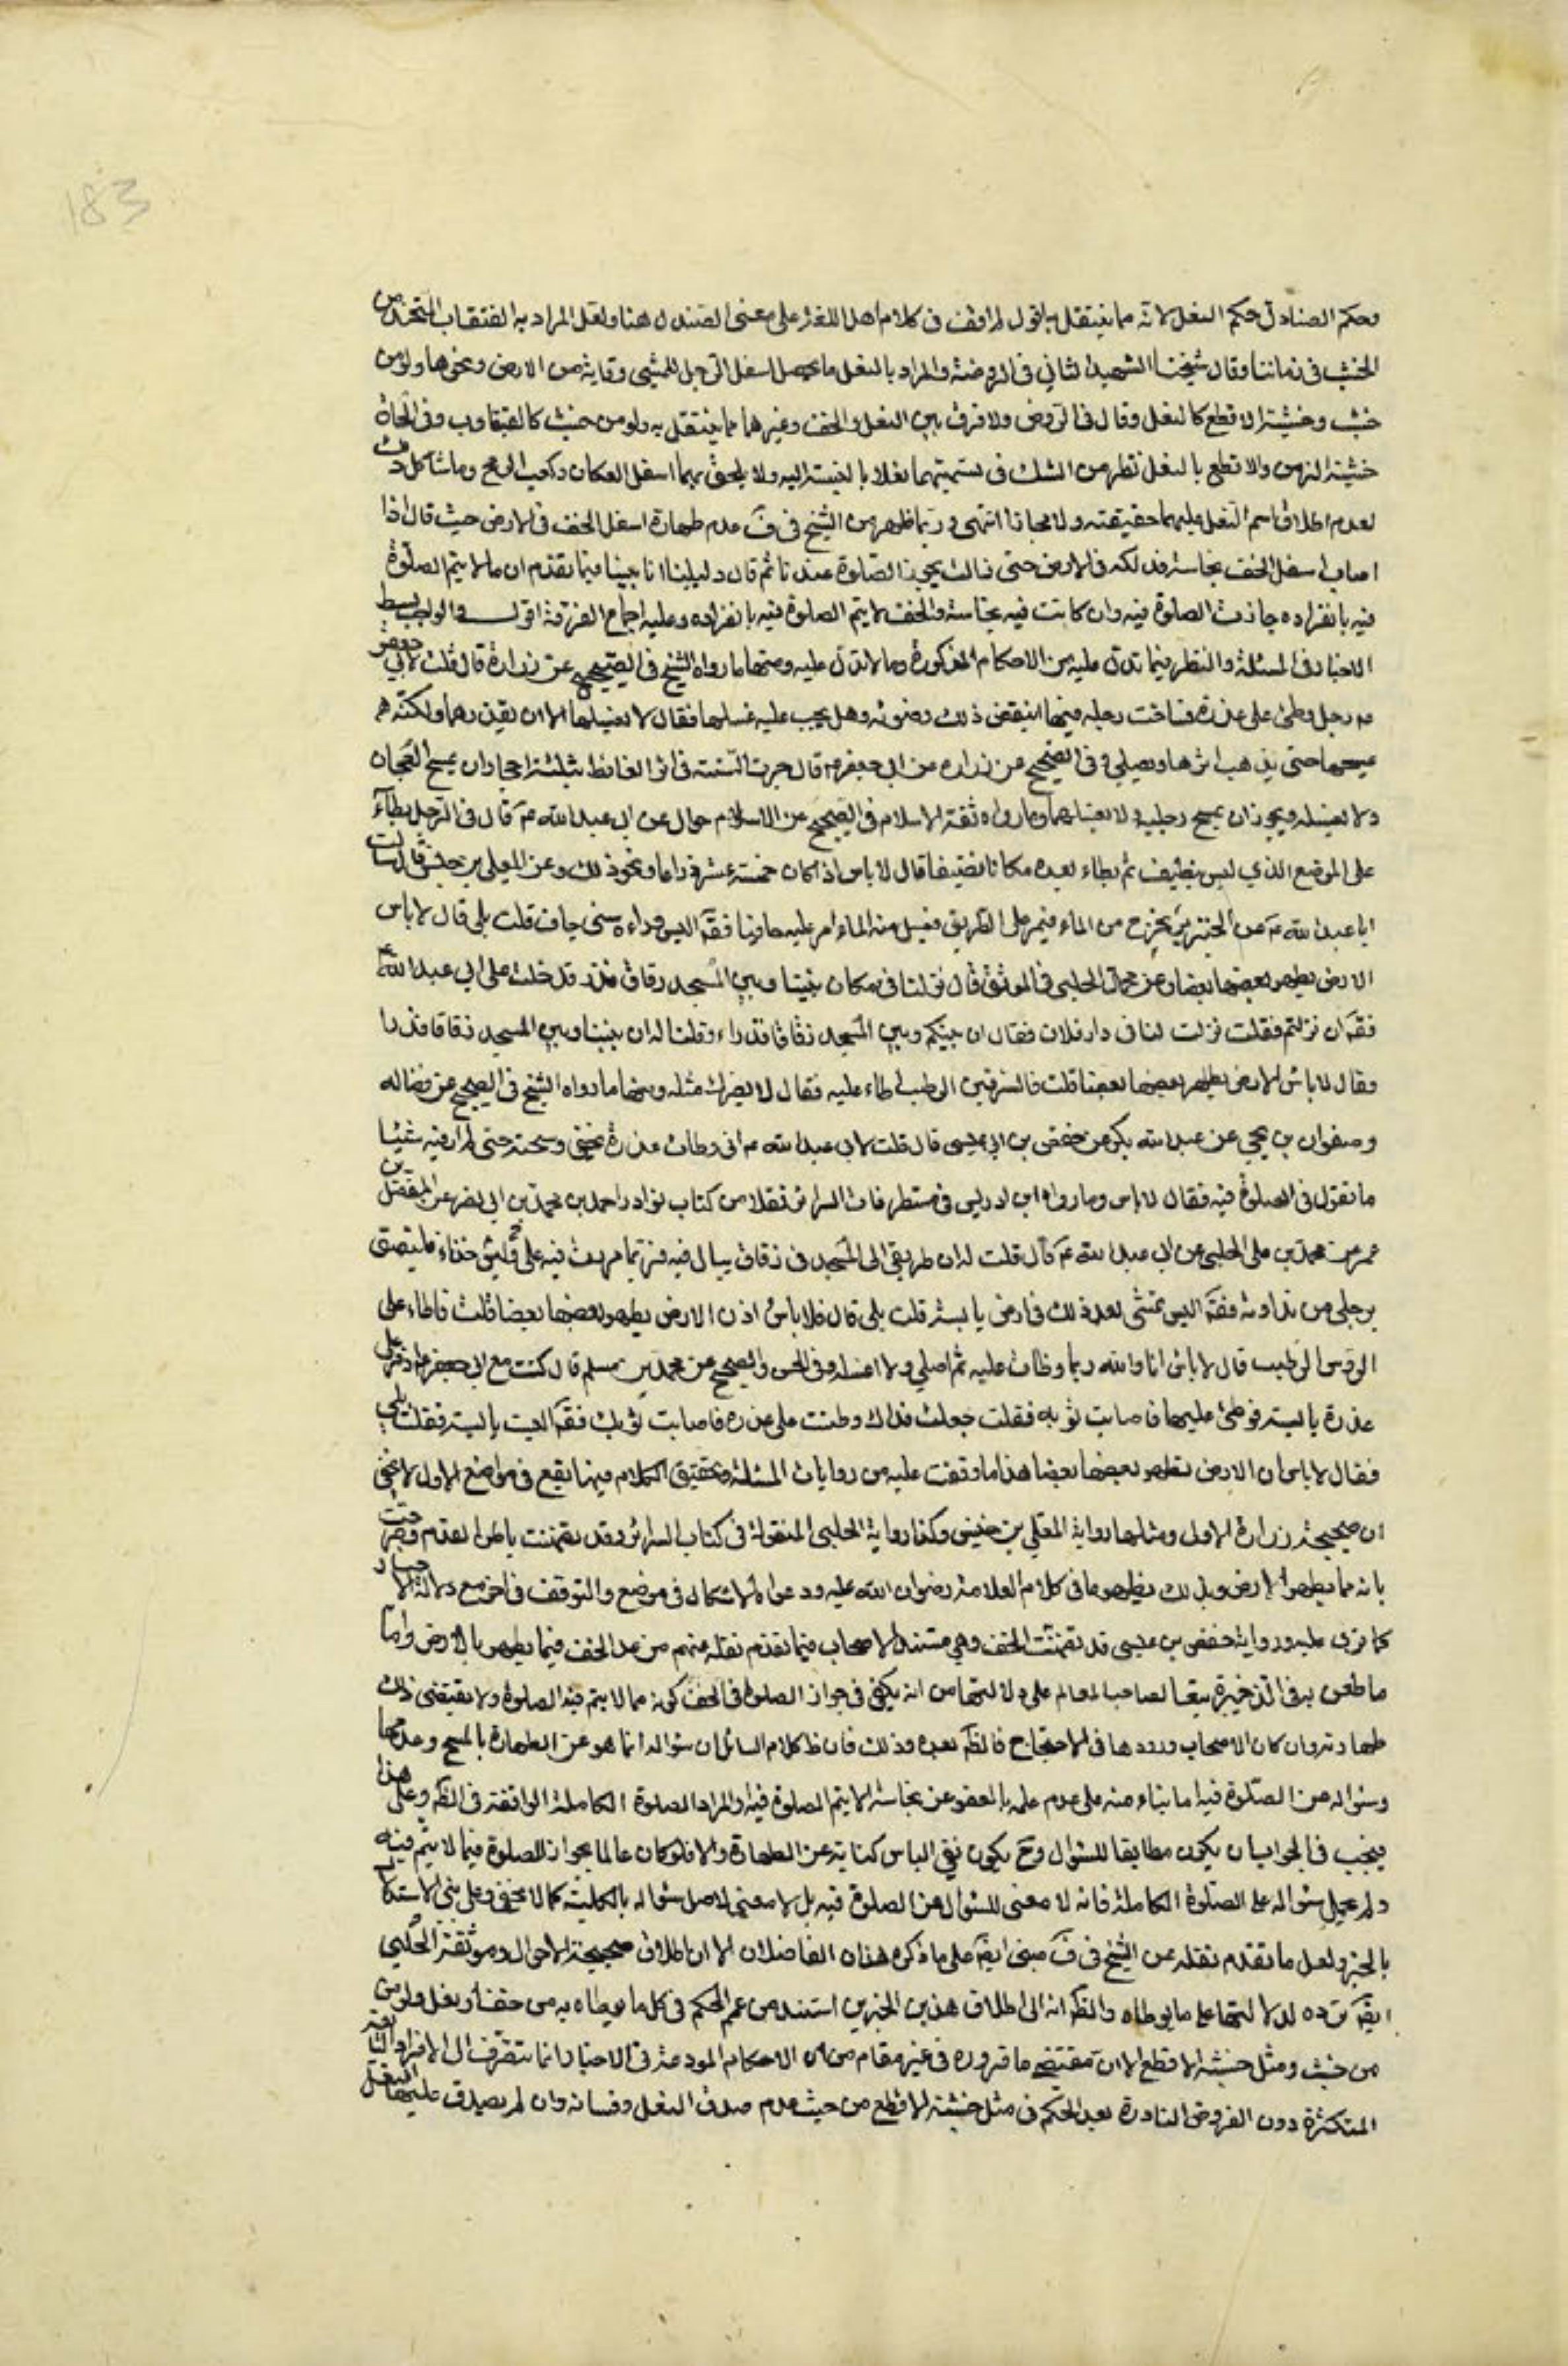 183
وحكم الصنادل حكم النعل لانه مما ينتقل به اقول لم اقف في كلام اهل اللغة على معنى الصندل هنا ولعل المراد به القبقاب المتخذ من
الخشب في زماننا وقال شيخنا الشهيد الثاني في الروضة والمراد بالنعل ما يجعل اسفل الرجل للمشي وقاية من الارض ونحوها ولو من
خشب وخشبة الاقطع كالنعل وقال في الروض ولا فرق بين النعل والخف وغيرهما مما ينتقل به ولو من خشب كالقبقاب وفي الحاق
خشبة الزمن والاقطع بالنعل نظر من الشك في تسميتهما نعلا بالنسبة اليه ولا يلحق بهما اسفل العكاز وكعب الرمح وما شاكل ذلك
لعدم اطلاق اسم النعل عليهما حقيقة ولا مجازا انتهى وربما ظهر من الشيخ في ف عدم طهارة اسفل الخف في الارض حيث قال اذا
اصاب اسفل الخف نجاسة فدلكه في الارض حتى زالت يجوز الصلوة عندنا ثم قال دليلنا انا بينا فيما تقدم ان ما لا يتم الصلوة
فيه بانفراده جازت الصلوة فيه وان كانت فيه نجاسة والخف لا يتم الصلوة فيه بانفراده وعليه اجماع الفرقة اقول والواجب بسط
الاخبار في المسئلة والنظر فيما تدل عليه من الاحكام المذكورة وما لا تدل عليه ومنها ما رواه الشيخ في الصحيح عن زرارة قال قلت لابي جعفر
ع رجل وطئ على عذرة فساخت رجله فيها اينقض ذلك وضوئه وهل يجب عليه غسلها فقال لا يغسلها الا ان يقذرها ولكنه
يمسحها حتى يذهب اثرها ويصلي وفي الصحيح عن زرارة عن ابي جعفر ع قال جرت السنة في اثر الغائط بثلثة احجار ان يمسح العجان
ولا يغسله ويجوز ان يمسح رجليه ولا يغسلهما وما رواه ثقة الاسلام في الصحيح عن الاحول عن ابي عبد الله ع قال في الرجل يطأ
على الموضع الذي ليس بنظيف ثم يطاء بعده مكانا نظيفا قال لا باس اذا كان خمسة عشر ذراعا ونحو ذلك وعن المعلى بن خنيس قال سالت
ابا عبد الله ع عن الخنزير يخرج من الماء فيمر على الطريق فيسيل منه الماء امر عليه حافيا فقال اليس وراءه شئ جاف قلت بلى قال لا باس
الارض يطهر بعضها بعضا وعن محمد الحلبي في الموثق قال نزلنا في مكان بيننا وبين المسجد زقاق قذر فدخلت على ابي عبد الله ع
فقال اين نزلتم فقلت نزلت لنا في دار فلان فقال ان بينكم وبين المسجد زقاقا قذرا او قلنا له ان بيننا وبين المسجد زقاقا قذرا
وقال لا باس الارض يطهر بعضها بعضا قلت فالسرقين الرطب اطاء عليه فقال لا يضرك مثله ومنها ما رواه الشيخ في الصحيح عن فضاله
وصفوان بن يحيى عن عبد الله بكير عن حفص بن ابي عيسى قال قلت لابي عبد الله ع اني وطات عذرة بخفي ومسحته حتى لم ار فيه شيئا
ما تقول في الصلوة فيه فقال لا باس وما رواه ابن ادريس في مستطرفات السرائر نقلا من كتاب نوادر احمد بن محمد بن ابي نصر عن المفضل بن
عمر عن محمد بن علي الحلبي عن ابي عبد الله ع قال قلت له ان طريقي الى المسجد في زقاق يبال فيه فربما مررت فيه وليس علي حذاء فيلتصق
برجلي من نداوته فقال اليس تمشي بعد ذلك في ارض يابسة قلت بلى قال فلا باس اذن الارض يطهر بعضها بعضا قلت فاطاء على
الروث الرطب قال لا باس انا والله ربما وطات عليه ثم اصلي ولا اغسله وفي الحسن والصحيح عن محمد بن مسلم قال كنت مع ابي جعفر ع اذ مر على
عذرة يابسة فوطئ عليها فاصابت ثوبه فقلت جعلت فداك وطئت على عذرة فاصابت ثوبك فقال اليست يابسة فقلت بلى
فقال لا باس ان الارض تطهر بعضها بعضا هذا ما وقفت عليه من روايات المسئلة وتحقيق الكلام فيها يقع في مواضع الاول لا يخفى
ان صحيحة زرارة الاولى ومثلها رواية المعلى بن خنيس وكذا رواية الحلبي المنقولة في كتاب السرائر وقد تضمنت باطن القدم وصرحت
بانه مما يطهر الارض وبذلك يظهر ما في كلام العلامة رضوان الله عليه ودعواه الاشكال في موضع والتوقف في اخر مع دلالة الاخبار
كما ترى عليه ورواية حفص بن عيسى قد تضمنت الخف وهي مستند الاصحاب فيما تقدم نقله عنهم من عد الخف فيما يطهر بالارض واما
ما طعن به في الذخيرة تبعا لصاحب المعالم على دلالتها من انه يكفي في جواز الصلوة في الخف كونه مما لا يتم فيه الصلوة ولا يقتضي ذلك
طهارته وان كان الاصحاب اوردوها في الاحتجاج فالظاهر بعده وذلك فان ظ كلام السائل ان سؤاله انما هو عن الطهارة بالمسح وعدمها
وسؤاله عن الصلوة فيه اما بناء منه على عدم علمه بالعفو عن نجاسة ما لا يتم الصلوة فيه او المراد الصلوة الكاملة الواقعة في الظاهر وعلى هذا
فيجب في الجواب ان يكون مطابقا للسؤال وح يكون نفي الباس كناية عن الطهارة والا فلو كان عالما بجواز الصلوة فيما لا يتم فيه
ولم يحمل سؤاله على الصلوة الكاملة فانه لا معنى للسؤال عن الصلوة فيه بل لا معنى لاصل سؤاله بالكلية كما لا يخفى وعلى نفي الاستدلال
بالخبر ولعل ما تقدم نقله عن الشيخ في ف مبني ايضا على ما ذكره هذان الفاضلان الا ان اطلاق صحيحة الاحول وموثقة الحلبي
ايضا ترده لدلالتها على ما يوطاه والظاهر انه الى اطلاق هذين الخبرين استند من عمم الحكم في كل ما يوطاه به من خف او نعل ولو من
من خشب ومثل خشبة الاقطع الا ان مقتضى ما قرروه في غير مقام من ان الاحكام المودعة في الاخبار انما تنصرف الى الافراد الشايعة
المتكثرة دون الفروض النادرة بعد الحكم في مثل خشبة الاقطع من حيث عدم صدق النعل وفسانه وان لم يصدق عليها النعل